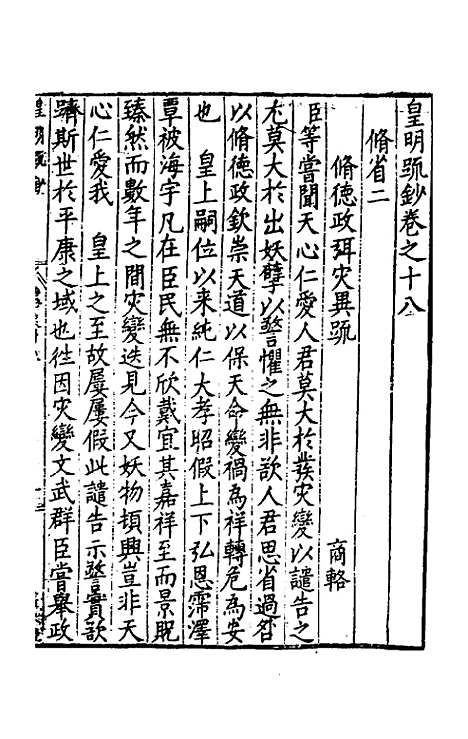 皇明疏鈔卷之十八
脩省二
脩德政弭灾異疏
商輅
臣等嘗聞天心仁愛人君莫大於發灾變以譴告之
尤莫大於出妖孽以警懼之無非欲人君思省過咎
以脩德政欽崇天道以保天命變禍為祥轉危為安
也　皇上嗣位以来純仁大孝昭假上下弘恩霈澤
覃被海宇凡在臣民無不欣戴宜其嘉祥至而景貺
臻然而數年之間灾變迭見今又妖物頓興豈非天
心仁愛我　皇上之至故屡屡假此譴告示警實欲
躋斯世於平康之域也徃因灾變文武群臣嘗舉政
皇明疏鈔